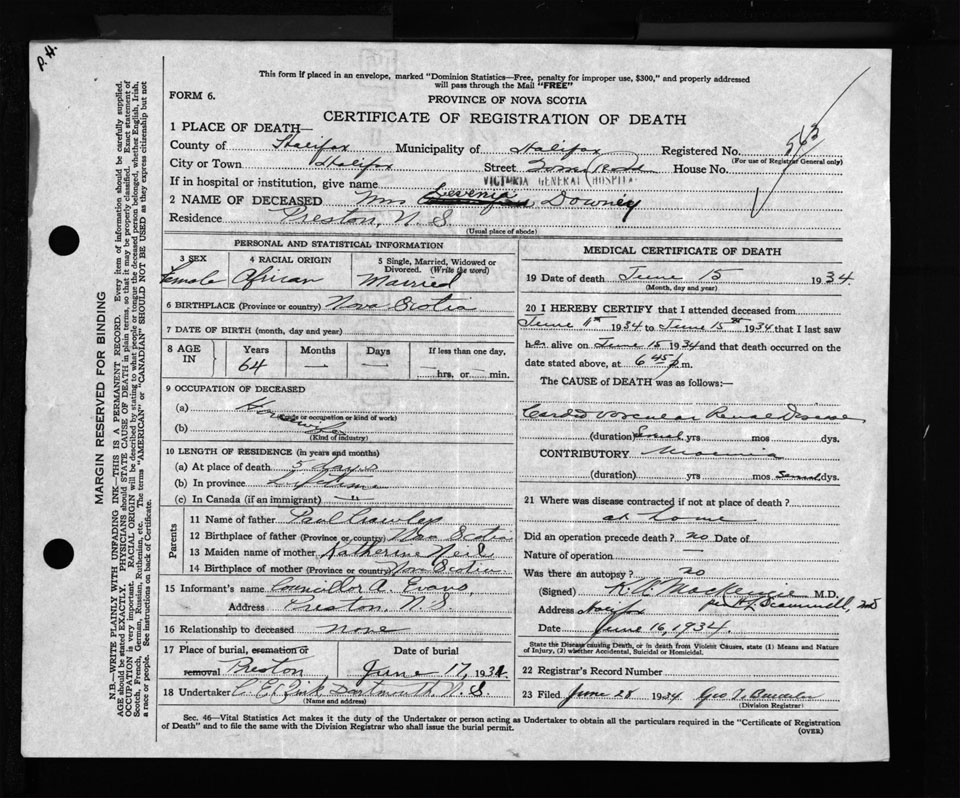 P. H.
This form if placed in an envelope, marked "Dominion Statistics—Free, penalty for improper use, $300," and properly addressed
will pass through the Mail "FREE"
FORM 6.
PROVINCE OF NOVA SCOTIA
CERTIFICATE OF REGISTRATION OF DEATH
1 PLACE OF DEATH—
County of Halifax Municipality of Halifax Registered No.
(For use of Registrar General only)
City or Town Halifax Street House No.
If in hospital or institution, give name VICTORIA GENERAL HOSPITAL
2 NAME OF DECEASED Mrs Downey
Residence Preston, N. S.
(Usual place of abode)
PERSONAL AND STATISTICAL INFORMATION
3 SEX Female
4 RACIAL ORIGIN African
5 Single, Married, Widowed or Divorced. (Write the word) Married
6 BIRTHPLACE (Province or country) Nova Scotia
7 DATE OF BIRTH (month, day and year)
8 AGE IN Years 64 Months — Days — If less than one day, — hrs. or — min.
9 OCCUPATION OF DECEASED
(a) Housewife
(Trade or occupation or kind of work)
(b)
(Kind of industry)
10 LENGTH OF RESIDENCE (in years and months)
(a) At place of death 5 days
(b) In province Lifetime
(c) In Canada (if an immigrant) "
Parents
11 Name of father Paul Crawley
12 Birthplace of father (Province or country) Nova Scotia
13 Maiden name of mother Katherine
14 Birthplace of mother (Province or country) Nova Scotia
15 Informant's name Councillor A. Evans,
Address Preston, N.S.
16 Relationship to deceased none
17 Place of burial, cremation or removal Preston Date of burial June 17, 1934
18 Undertaker Dartmouth N. S.
(Name and address)
MEDICAL CERTIFICATE OF DEATH
19 Date of death June 15 1934.
(Month, day and year)
20 I HEREBY CERTIFY that I attended deceased from
June 11th 1934 to June 15th 1934 that I last saw
her alive on June 15 1934 and that death occurred on the
date stated above, at 6 45 p.m.
The CAUSE of DEATH was as follows:—
Cardio Vascular Renal Disease
(duration) Several yrs mos dys.
CONTRIBUTORY Uraemia
(duration) yrs mos Several dys.
21 Where was disease contracted if not at place of death?
at home
Did an operation precede death? no Date of
Nature of operation —
Was there an autopsy? no
(Signed) MacKenzie M.D.
Address Halifax per
Date June 16, 1934.
State the Disease causing Death, or in death from Violent Causes, state (1) Means and Nature
of Injury, (2) whether Accidental, Suicidal or Homicidal.
22 Registrar's Record Number
23 Filed June 28 1934 Geo
(Division Registrar)
Sec. 46—Vital Statistics Act makes it the duty of the Undertaker or person acting as Undertaker to obtain all the particulars required in the "Certificate of Registration
of Death" and to file the same with the Division Registrar who shall issue the burial permit.
(OVER)
MARGIN RESERVED FOR BINDING
N.B.—WRITE PLAINLY WITH UNFADING INK—THIS IS A PERMANENT RECORD. Every item of information should be carefully supplied.
AGE should be stated EXACTLY. PHYSICIANS should STATE CAUSE OF DEATH in plain terms, so that it may be properly classified. Exact statement of
OCCUPATION is very important. RACIAL ORIGIN will be described by stating to what people or tongue the deceased person belonged, whether English, Irish,
Scotch, French, German, Russian, Ruthenian, etc. The terms "AMERICAN" or "CANADIAN" SHOULD NOT BE USED as they express citizenship but not
a race or people. See instructions on back of Certificate.